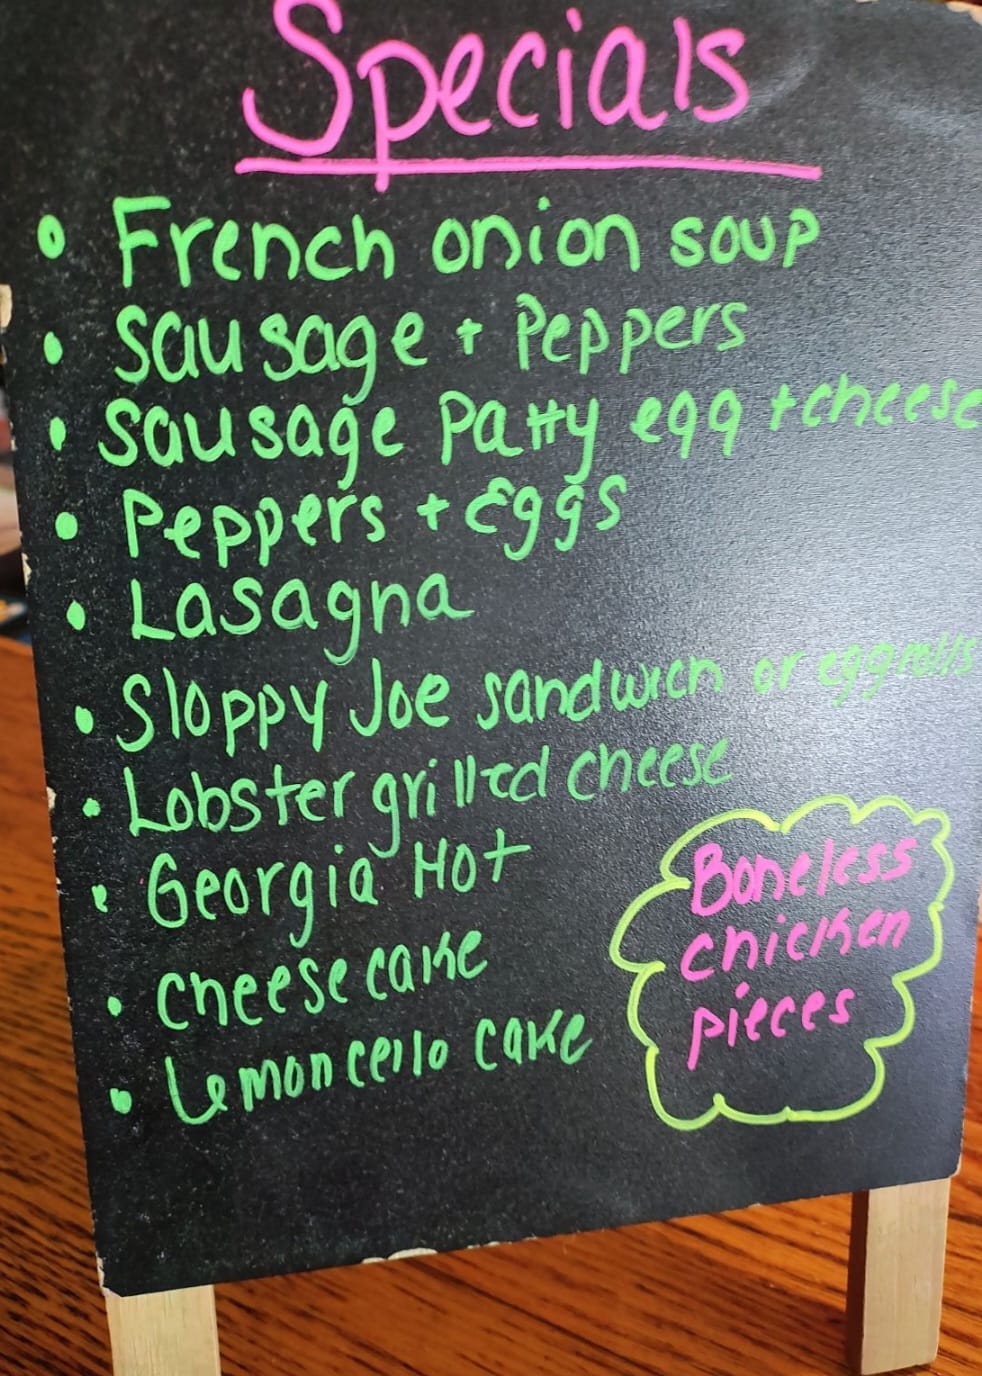 Specials
• French onion soup
• Sausage + Peppers
• Sausage Patty egg + cheese
• Peppers + Eggs
• Lasagna
• Sloppy Joe sandwich or eggrolls
• Lobster grilled cheese
• Georgia Hot
• cheese cake
• Lemoncello cake
Boneless
chicken
pieces